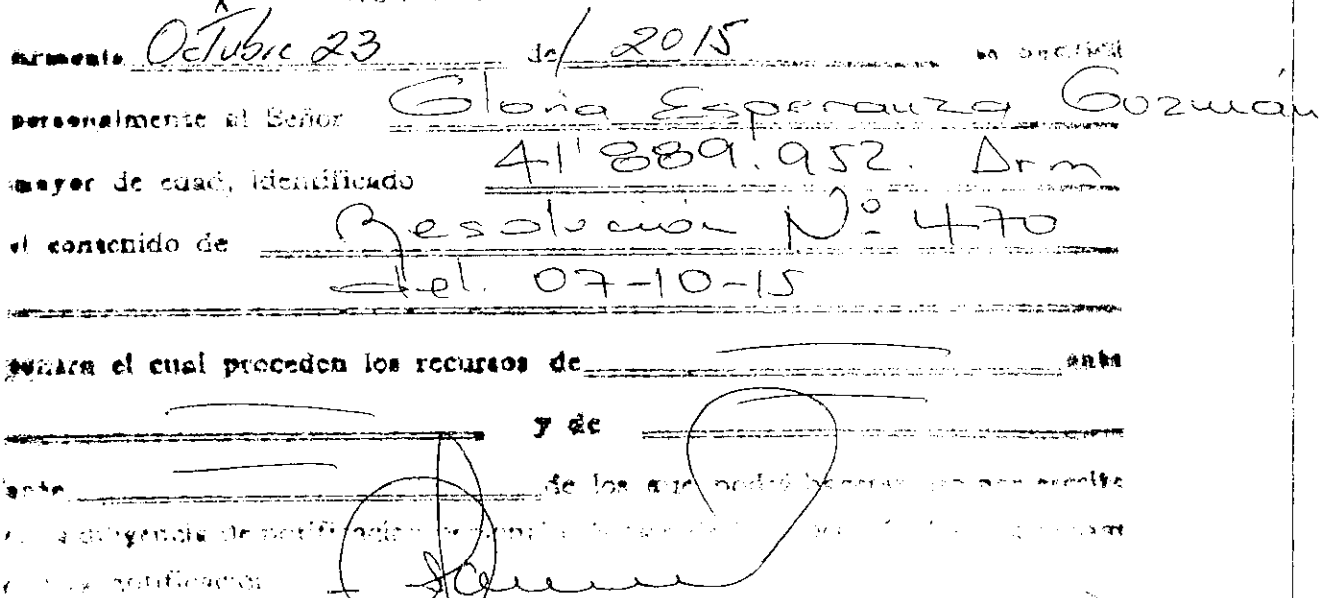 Armenia Octubre 23 de/ 2015 se notificó
personalmente al Señor Gloria Esperanza Guzmán
mayor de edad, identificado 41'889.952. Arm
el contenido de Resolución Nº 470
del. 07-10-15
contra el cual proceden los recursos de ante
y de
ante de los que podrá hacerse uso por escrito
diligencia de notificación personal
notificación